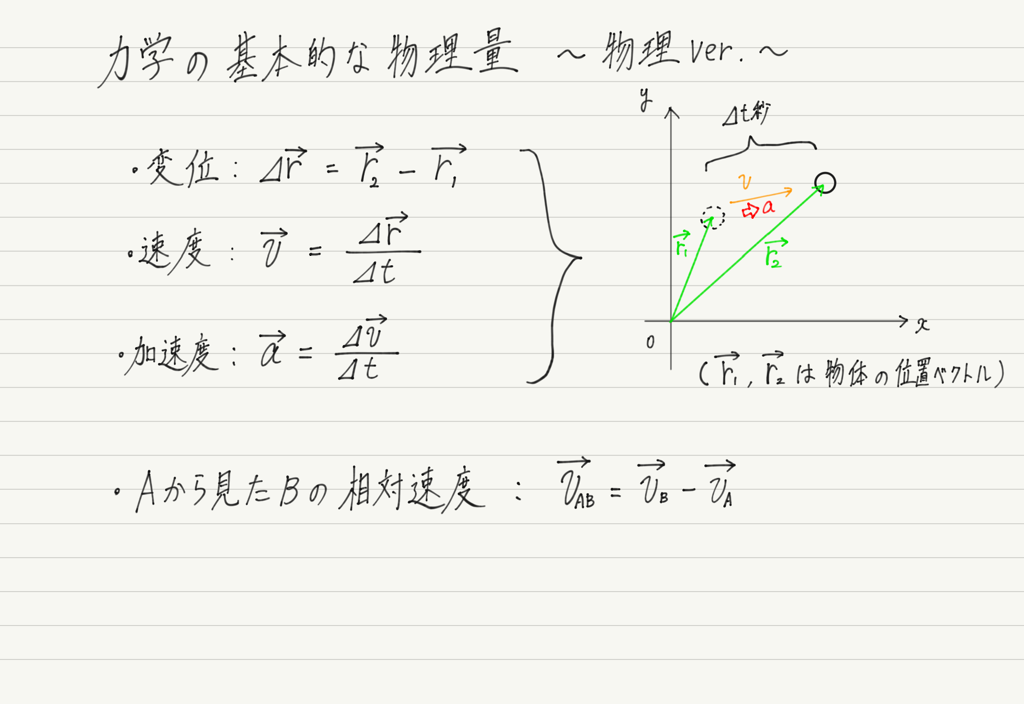 力学の基本的な物理量 ～物理ver.～
・変位：Δr⃗ = r⃗₂ − r⃗₁
・速度：v⃗ = Δr⃗/Δt
・加速度：a⃗ = Δv⃗/Δt
y
Δt秒
v
⇨a
r⃗₁
r⃗₂
0
x
(r⃗₁, r⃗₂は物体の位置ベクトル)
・Aから見たBの相対速度：v⃗AB = v⃗B − v⃗A